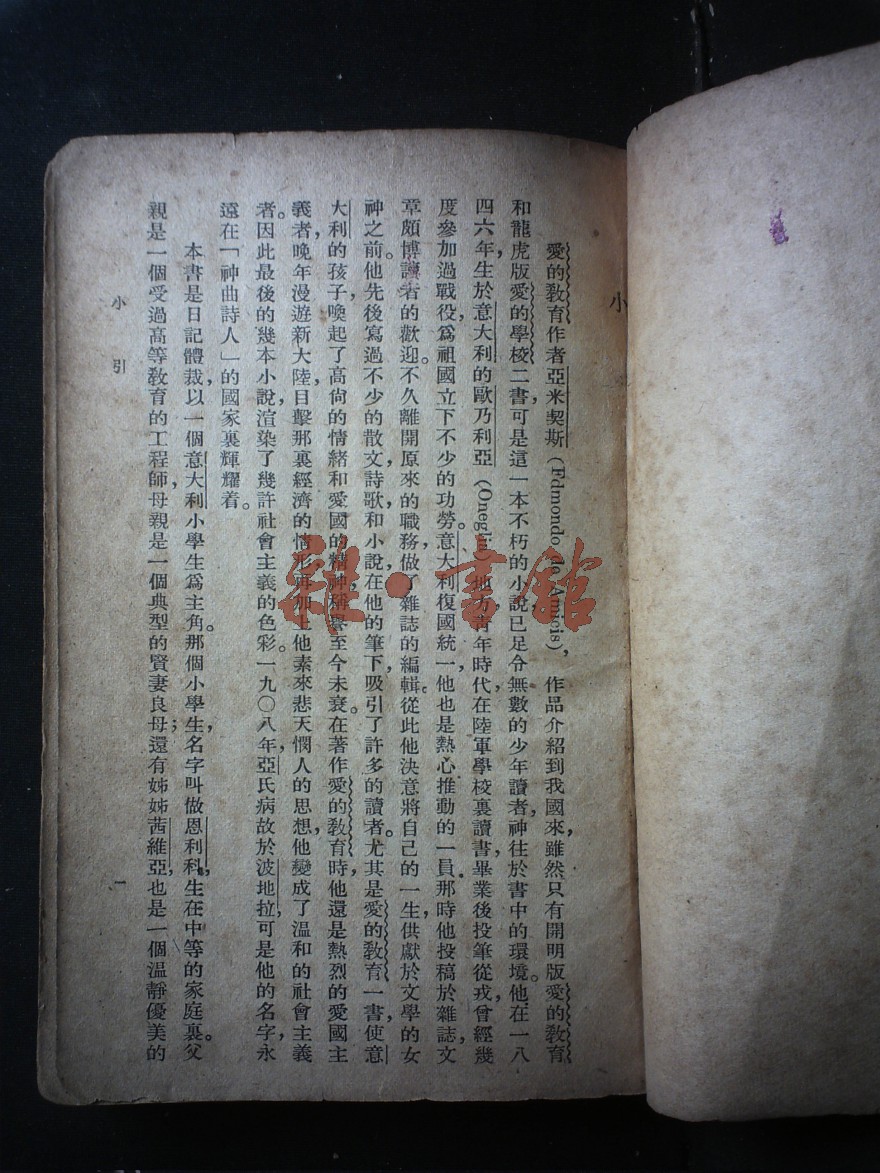 小
愛的教育作者亞米契斯 (Edmondo de Amicis)，作品介紹到我國來，雖然只有開明版愛的教育
和龍虎版愛的學校二書，可是這一本不朽的小說，已足令無數的少年讀者，神往於書中的環境。他在一八
四六年，生於意大利的歐乃利亞 (Onegiu) 地方。青年時代，在陸軍學校裏讀書，畢業後，投筆從戎，曾經幾
度參加過戰役，爲祖國立下不少的功勞。意大利復國統一，他也是熱心推動的一員。那時他投稿於雜誌，文
章頗博讀者的歡迎。不久離開原來的職務，做了雜誌的編輯。從此他決意將自己的一生，供獻於文學的女
神之前。他先後寫過不少的散文，詩歌，和小說，在他的筆下，吸引了許多的讀者。尤其是愛的教育一書，使意
大利的孩子，喚起了高尙的情緒和愛國的精神，稱譽至今未衰。在著作愛的教育時，他還是熱烈的愛國主
義者，晚年漫遊新大陸，目擊那裏經濟的情形，再加上他素來悲天憫人的思想，他變成了溫和的社會主義
者。因此最後的幾本小說，渲染了幾許社會主義的色彩。一九〇八年，亞氏病故於波地拉，可是他的名字，永
遠在「神曲詩人」的國家裏輝耀着。
本書是日記體裁，以一個意大利小學生爲主角。那個小學生，名字叫做恩利科，生在中等的家庭裏。父
親是一個受過高等教育的工程師，母親是一個典型的賢妻良母；還有姊姊茜維亞，也是一個溫靜優美的
小引
一
雜·書館